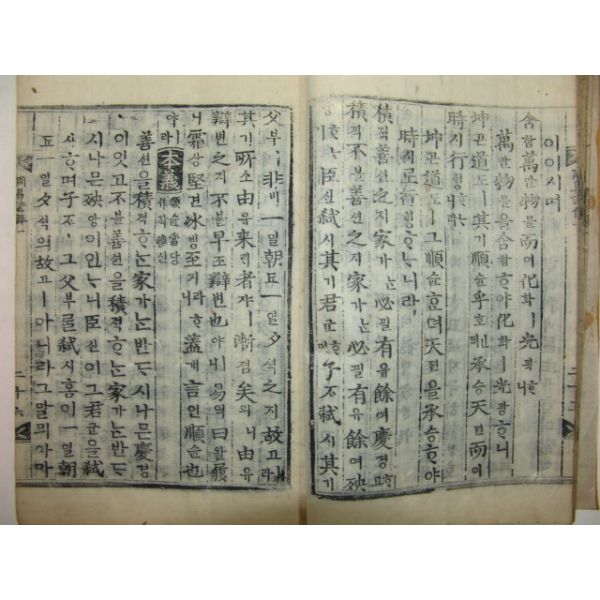 이이시며
含함萬만物물而이化화ㅣ光광ᄒᆞ니
萬만物물을含함ᄒᆞ야化화ㅣ光광ᄒᆞ니
坤곤道도ㅣ其기順슌乎호뎌承승天텬而이
時시行ᄒᆡᆼᄒᆞᄂᆞ니라
坤곤道도ㅣ그順슌ᄒᆞᆫ뎌天텬을承승ᄒᆞ야
時시로行ᄒᆡᆼᄒᆞᄂᆞ니라
積젹善션之지家가ᄂᆞᆫ必필有유餘여慶경ᄒᆞ고
積젹不블善션之지家가ᄂᆞᆫ必필有유餘여殃
앙ᄒᆞᄂᆞ니臣신弑시其기君군ᄒᆞ며子ᄌᆞ弑시其기
父부ㅣ非비一일朝됴一일夕셕之지故고ㅣ라
其기所소由유來ᄅᆡ者쟈ㅣ漸졈矣의니由유
辯변之지不블早조辯변也야ㅣ니易역曰왈履
니霜상堅견冰빙至지라ᄒᆞ니蓋개言언順슌也
야라 本義 順슌當당作작愼신
善션을積젹ᄒᆞᄂᆞᆫ家가ᄂᆞᆫ반ᄃᆞ시나믄慶경
이잇고不블善션을積젹ᄒᆞᄂᆞᆫ家가ᄂᆞᆫ반ᄃᆞ
시나믄殃앙이인ᄂᆞ니臣신이그君군을弑
시ᄒᆞ며子ᄌᆞㅣ그父부를弑시홈이一일朝
됴一일夕셕의故고ㅣ아니라그말ᄆᆡ아마
周易諺解 二十六